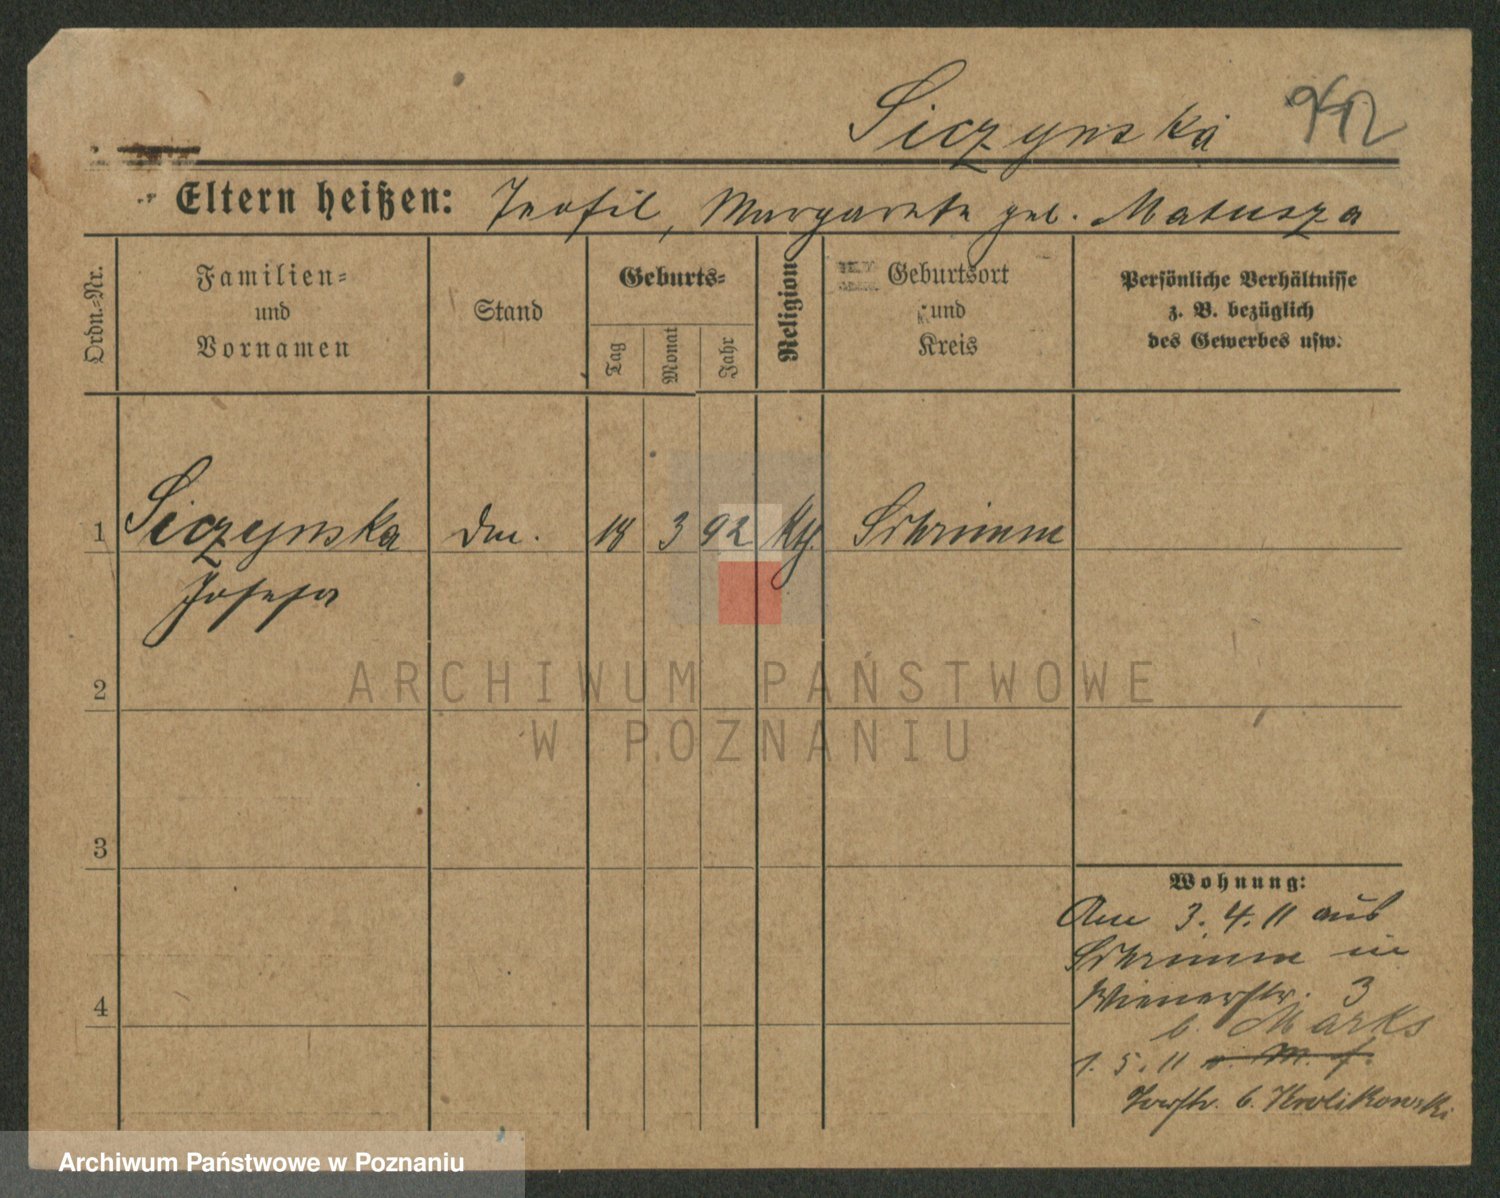 Siczynska 942
Eltern heißen: Teofil, Margarete geb. Matusza
Ordn.-Nr.
Familien-
und
Vornamen
Stand
Geburts-
Tag
Monat
Jahr
Religion
Geburtsort
und
Kreis
Persönliche Verhältnisse
z. B. bezüglich
des Gewerbes usw.
1 Siczynska 18 3 92 Kth. Schrimm
Josefa
2
ARCHIWUM PAŃSTWOWE
W POZNANIU
3
4
Wohnung:
Am 3. 4. 11 aus
Schrimm in
Wienerstr. 3
b. Marks
1. 5. 11
b. Krolikowski
Archiwum Państwowe w Poznaniu